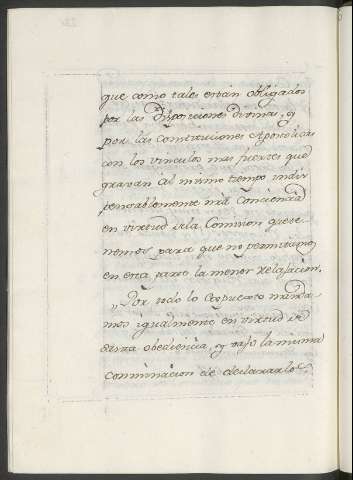 que como tales están obligados
por las Disposiciones divinas, y
por las Constituciones Apostolicas
con los vinculos mas fuertes que
gravan al mismo tiempo indis
pensablemente nrã Conciencia
en virtud de la Comision que te
nemos para que no permitamos
en esta parte la menor relajacion.
„Por todo lo expuesto manda
mos igualmente en virtud de
Santa obediencia, y vajo la misma
conminacion de declararlos